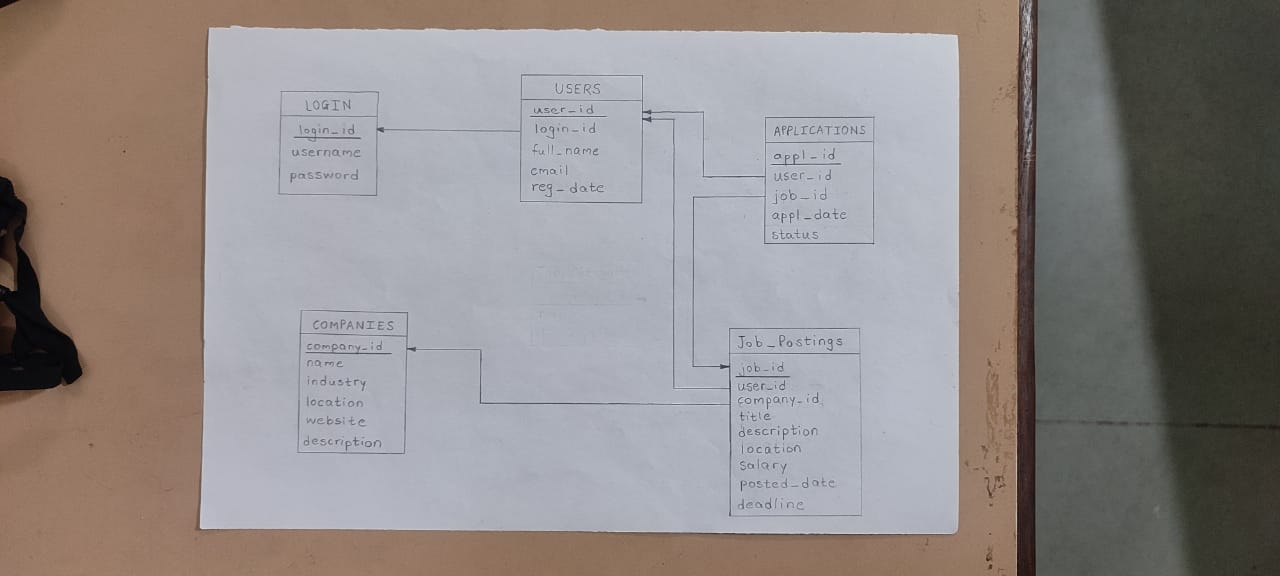 LOGIN
login_id
username
password
USERS
user_id
login_id
full_name
email
reg_date
APPLICATIONS
appl_id
user_id
job_id
appl_date
status
COMPANIES
company_id
name
industry
location
website
description
Job_Postings
job_id
user_id
company_id
title
description
location
salary
posted_date
deadline